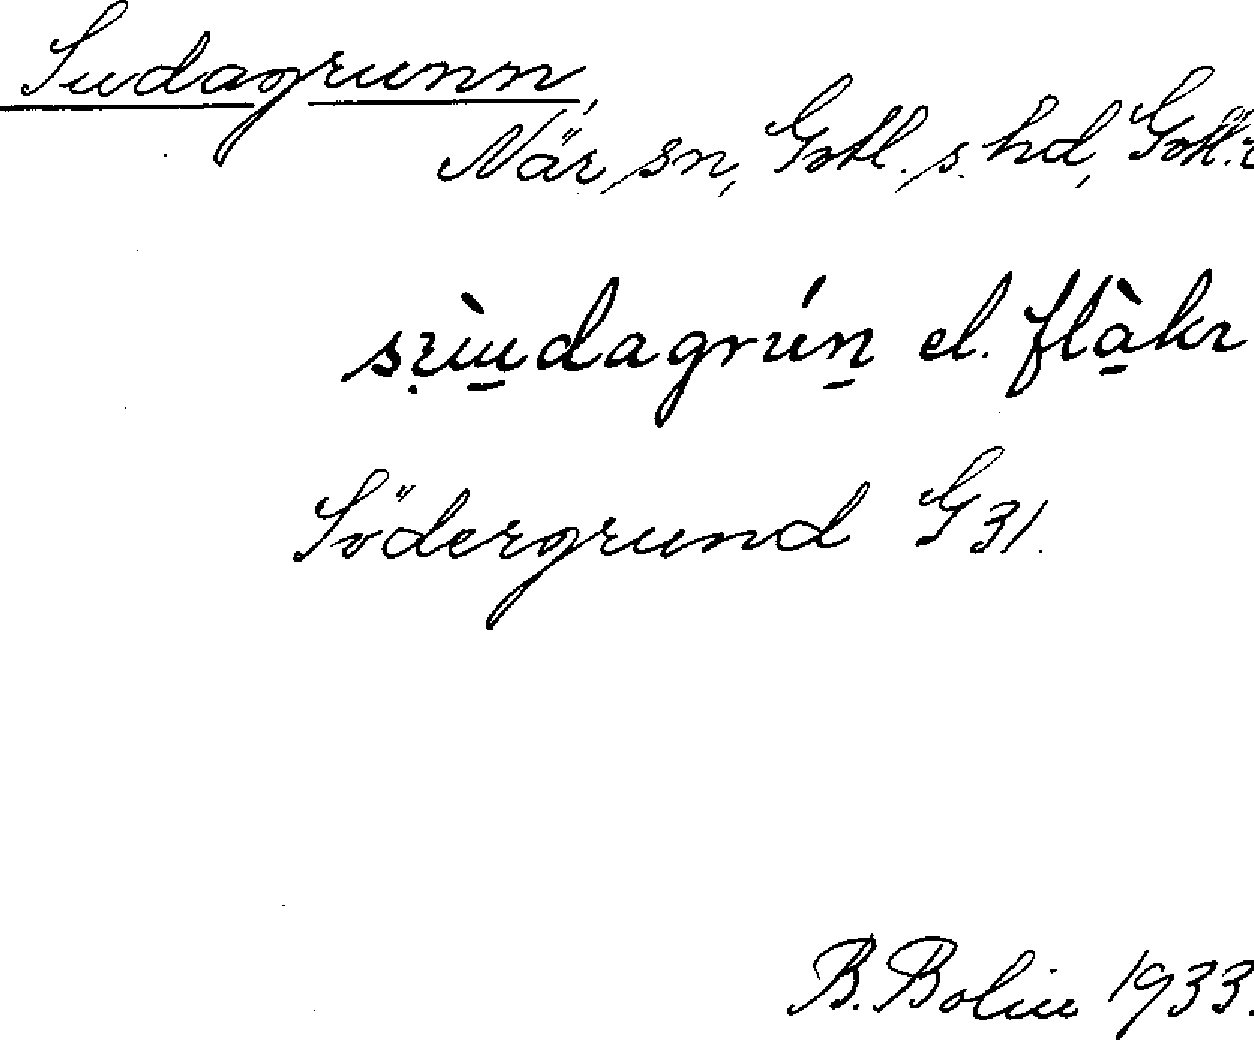 Sudagrunn,
När, sn, Gotl. s. hd, Gotl.
el. flàkr
Södergrund G 31.
B. Bolin 1933.